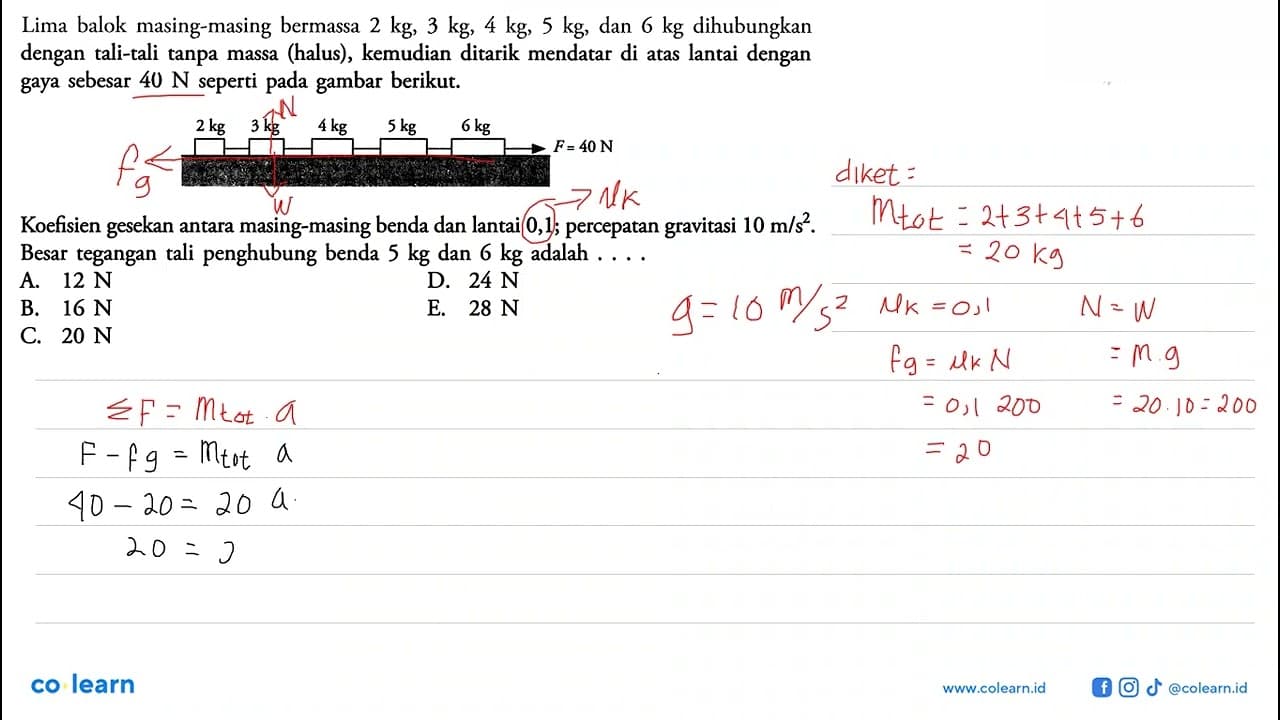 Lima balok masing-masing bermassa 2 kg, 3 kg, 4 kg, 5 kg, dan 6 kg dihubungkan
dengan tali-tali tanpa massa (halus), kemudian ditarik mendatar di atas lantai dengan
gaya sebesar 40 N seperti pada gambar berikut.
N
2 kg 3 kg 4 kg 5 kg 6 kg
F = 40 N
fg
W
μk
Koefisien gesekan antara masing-masing benda dan lantai 0,1; percepatan gravitasi 10 m/s².
Besar tegangan tali penghubung benda 5 kg dan 6 kg adalah . . . .
A. 12 N
B. 16 N
C. 20 N
D. 24 N
E. 28 N
diket =
mtot = 2+3+4+5+6
= 20 kg
g = 10 m/s²
μk = 0,1
fg = μk N
= 0,1 200
= 20
N = W
= m.g
= 20.10 = 200
ΣF = mtot . a
F - fg = mtot a
40 - 20 = 20 a.
20 =
co learn
www.colearn.id
@colearn.id